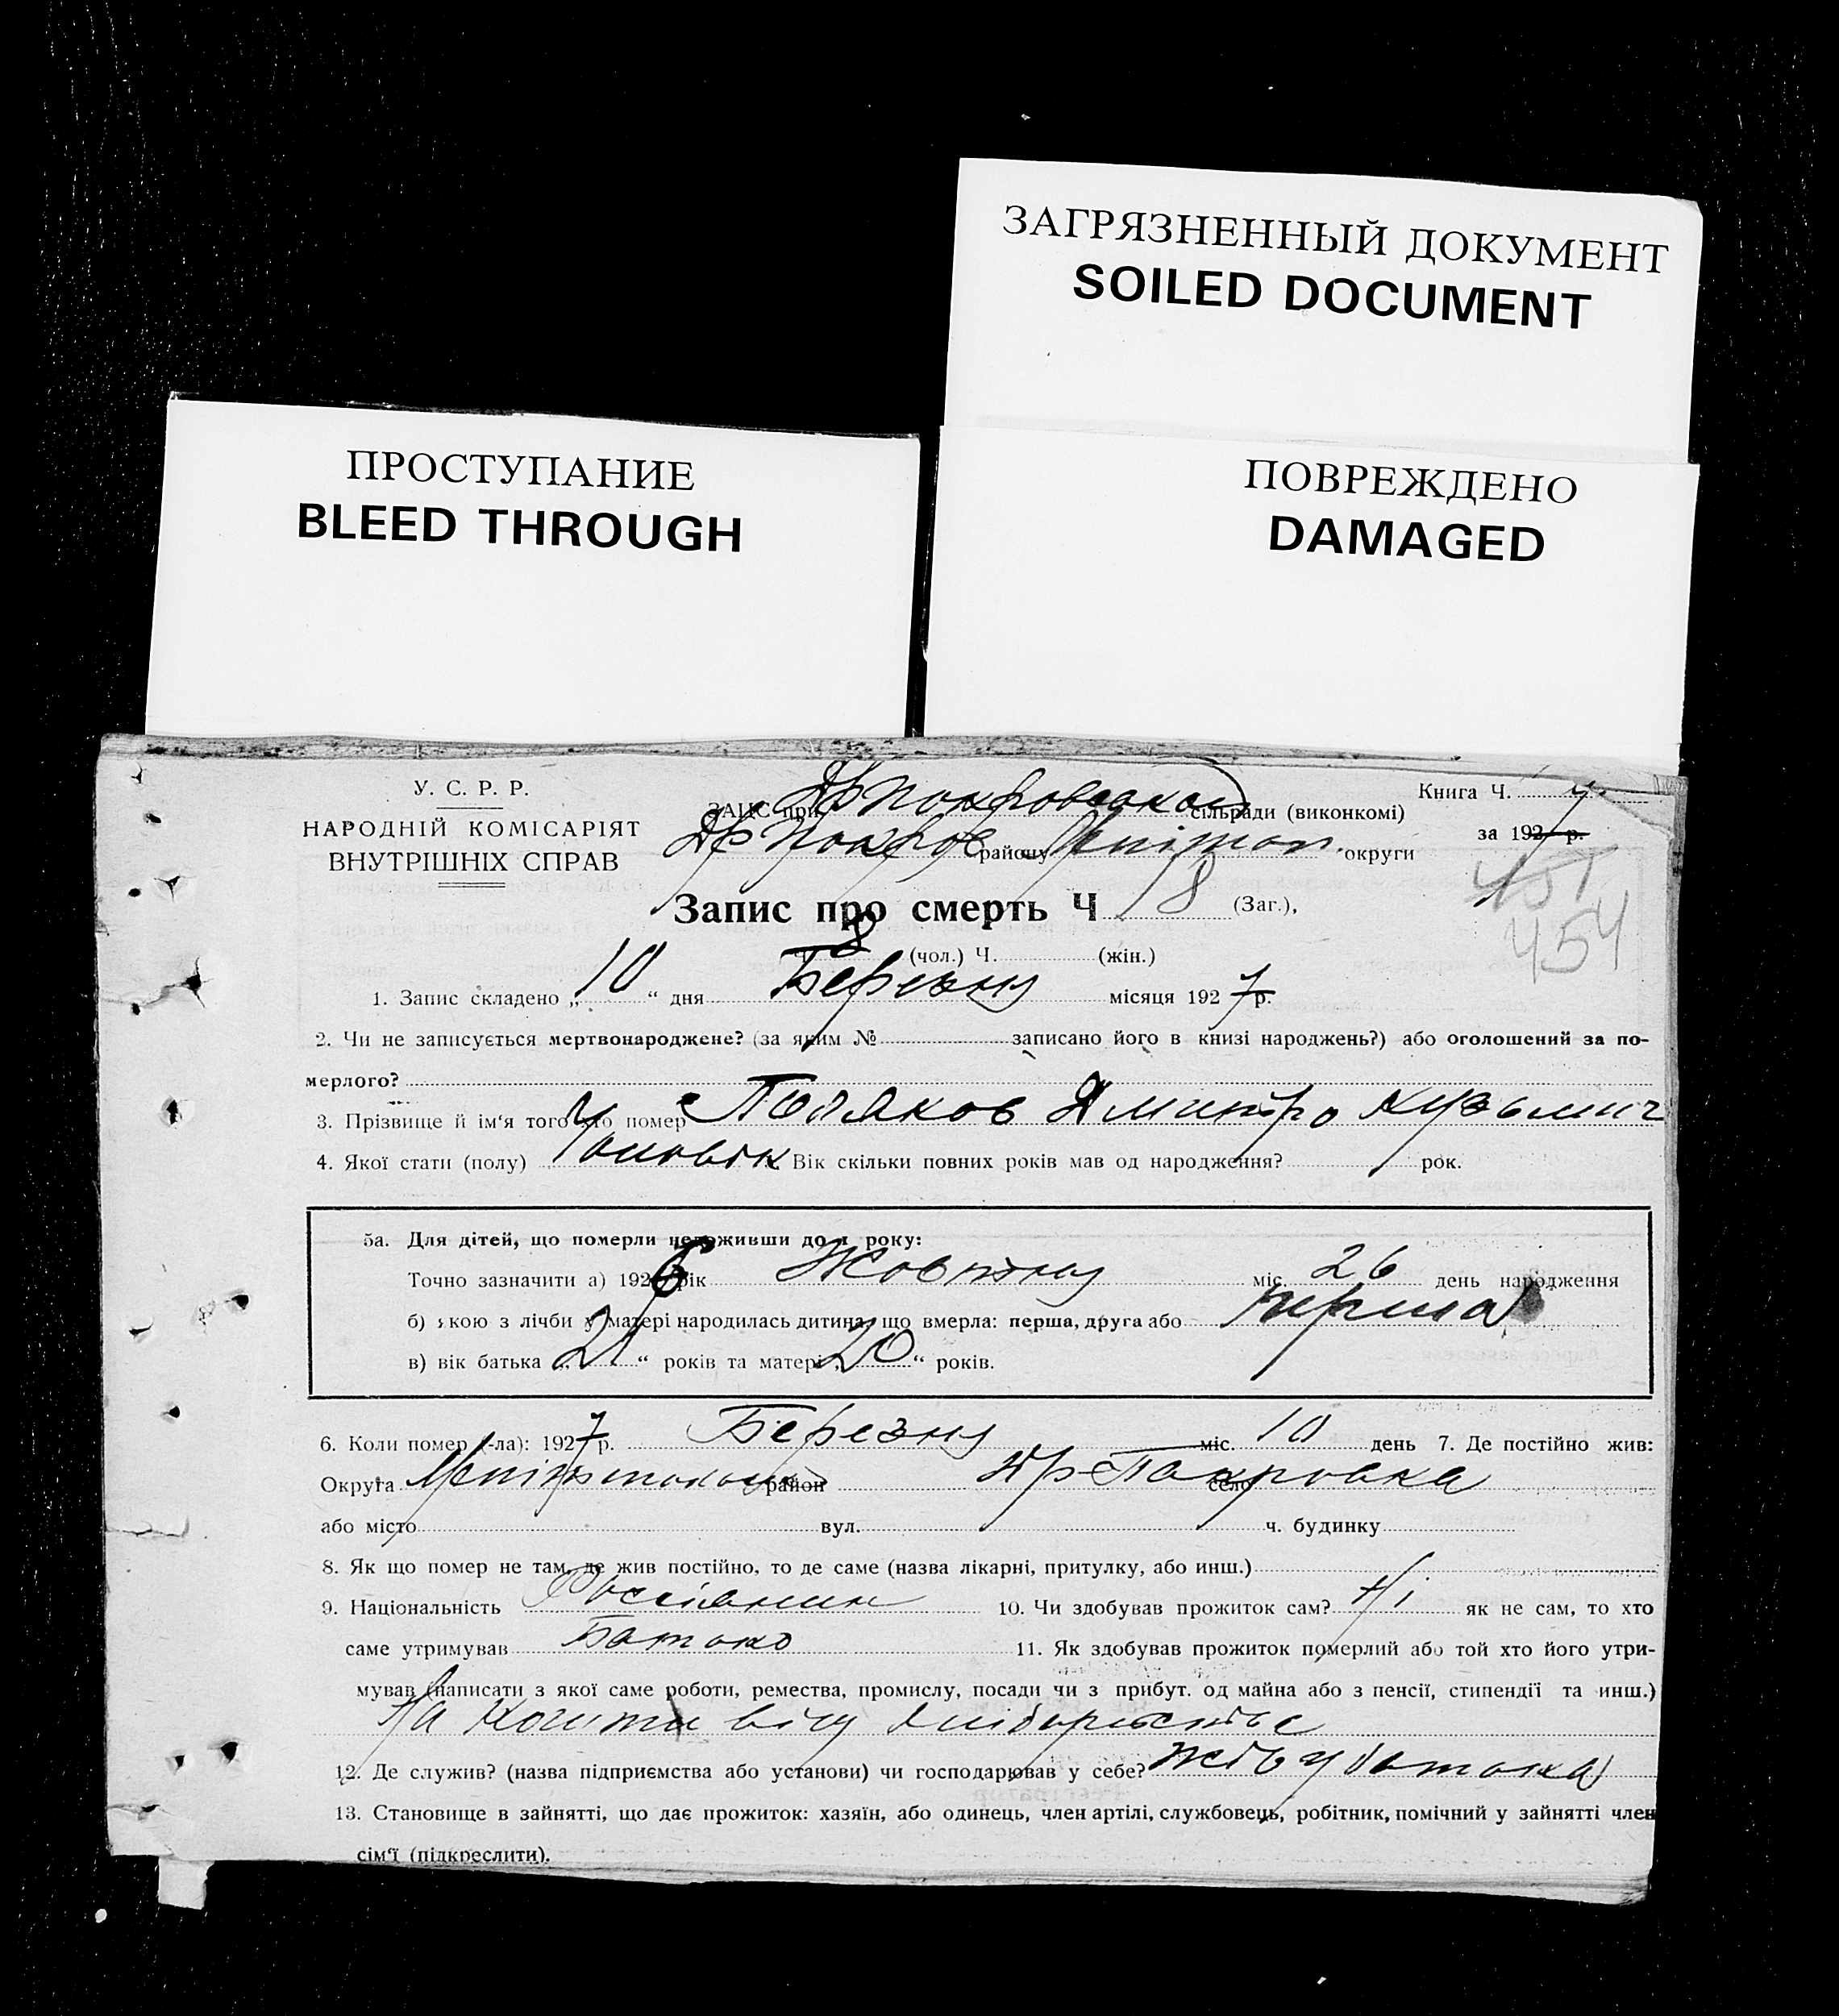 ЗАГРЯЗНЕННЫЙ ДОКУМЕНТ
SOILED DOCUMENT
ПРОСТУПАНИЕ
BLEED THROUGH
ПОВРЕЖДЕНО
DAMAGED
У. С. Р. Р.
НАРОДНІЙ КОМІСАРІЯТ
ВНУТРІШНІХ СПРАВ
ЗАЦС при сільради (виконкомі)
району округи
Книга Ч.
за 1927 р.
451
454
Запис про смерть Ч 18 (Заг.),
8 (чол.) Ч. (жін.)
1. Запис складено „ 10 “ дня Березня місяця 1927 р.
2. Чи не записується мертвонароджене? (за яким № записано його в книзі народжень?) або оголошений за по-
мерлого?
3. Прізвище й ім'я того хто помер Поляков Дмитро Кузьмич
4. Якої стати (полу) Чоловік Вік скільки повних років мав од народження? рок.
5а. Для дітей, що померли недоживши до 1 року:
Точно зазначити а) 1926 рік Жовтня міс. 26 день народження
б) якою з лічби у матері народилась дитина, що вмерла: перша, друга або перша
в) вік батька „ 21 “ років та матері „ 20 “ років.
6. Коли помер (-ла): 1927 р. Березня міс. 10 день 7. Де постійно жив:
Округа район село Др-Покровка
або місто вул. ч. будинку
8. Як що помер не там, де жив постійно, то де саме (назва лікарні, притулку, або инш.)
9. Національність Россіянин 10. Чи здобував прожиток сам? Ні як не сам, то хто
саме утримував Батько 11. Як здобував прожиток померлий або той хто його утри-
мував (написати з якої саме роботи, ремества, промислу, посади чи з прибут. од майна або з пенсії, стипендії та инш.)
На кошти від хліборобства
12. Де служив? (назва підприємства або установи) чи господарював у себе? жів у батька
13. Становище в зайнятті, що дає прожиток: хазяїн, або одинець, член артілі, службовець, робітник, помічний у зайнятті член
сім'ї (підкреслити).